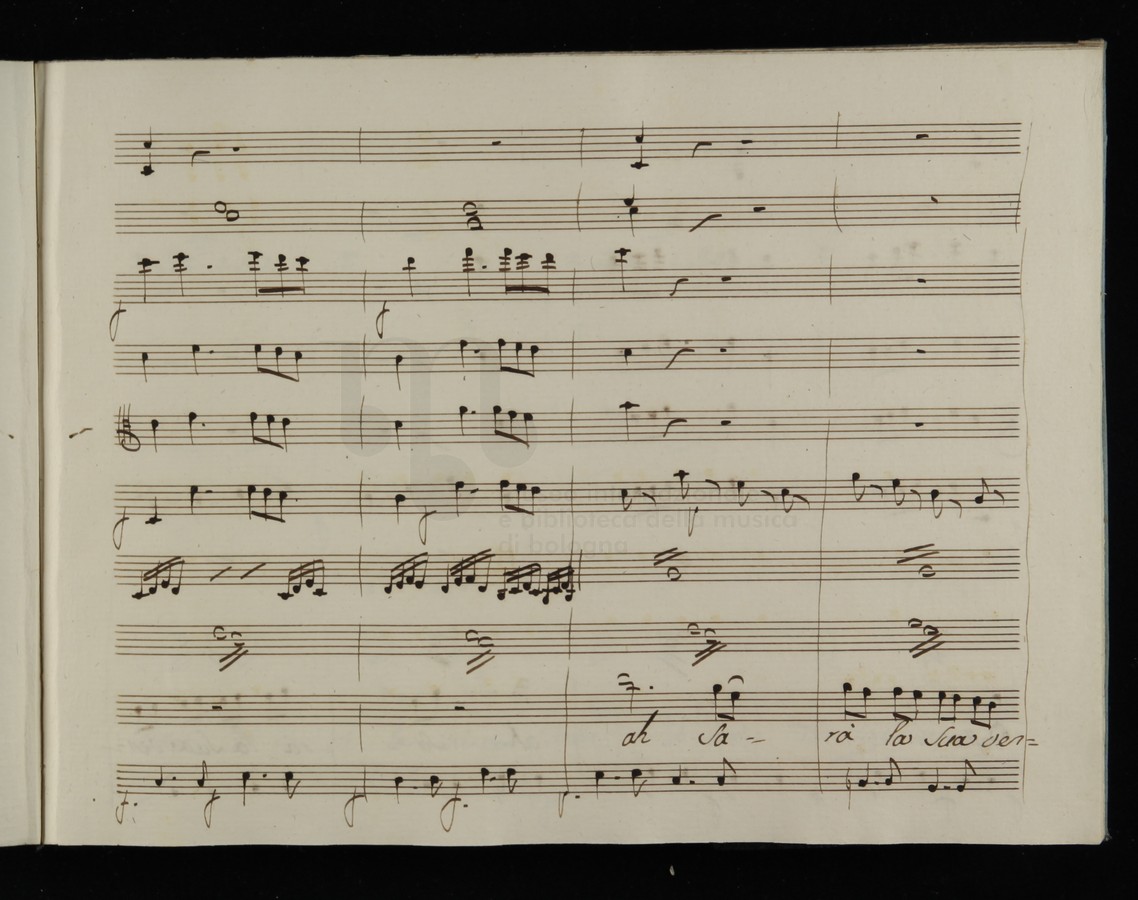 f f
f f f
museo internazionale
e biblioteca della musica
di bologna
ah sa- rà la sua ven=
f. f f f. f.